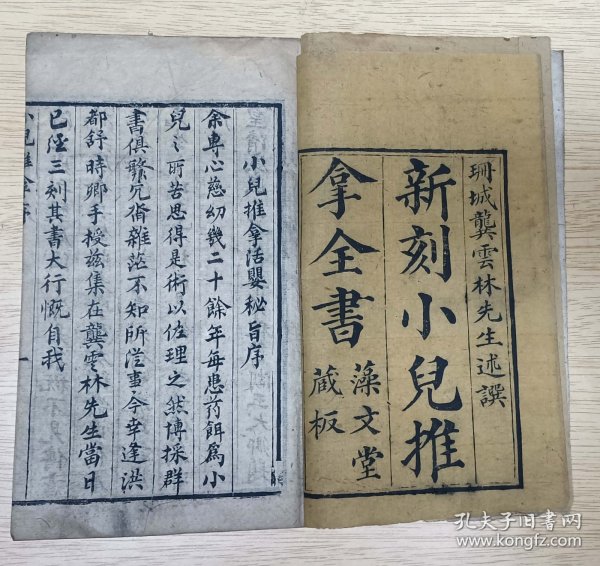 珊城龔雲林先生述譔
新刻小兒推
拿全書
藻文堂
蔵板
小兒推拿活嬰秘旨序
余専心慈幼幾二十餘年每患药餌爲小
兒〻所苦思得是術以佐理之然博採群
書俱繁冗俻雜茫不知所從事今幸逢洪
都舒時卿手授兹集在龔雲林先生當日
已經三刻其書大行慨自我
孔夫子旧书网
www.kongfz.com